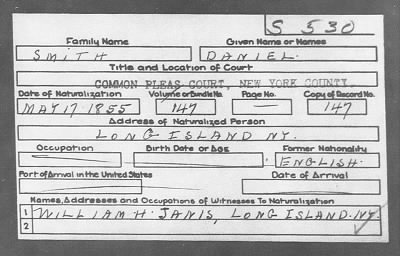 S 530
Family Name Given Name or Names
SMITH DANIEL
Title and Location of Court
COMMON PLEAS COURT, NEW YORK COUNTY
Date of Naturalization Volume or Bundle No. Page No. Copy of Record No.
MAY 17 1855 147 — 147
Address of Naturalized Person
LONG ISLAND NY.
Occupation Birth Date or Age Former Nationality
— — ENGLISH
Port of Arrival in the United States Date of Arrival
Names, Addresses and Occupations of Witnesses To Naturalization
1 WILLIAM H. JANIS, LONG ISLAND. NY.
2